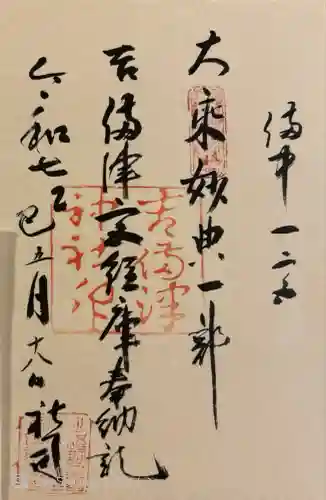 備中一之宮
大乗妙典一部
吉備津宮経庫奉納訖
令和七乙巳五月十八日 社司
吉備津神社印